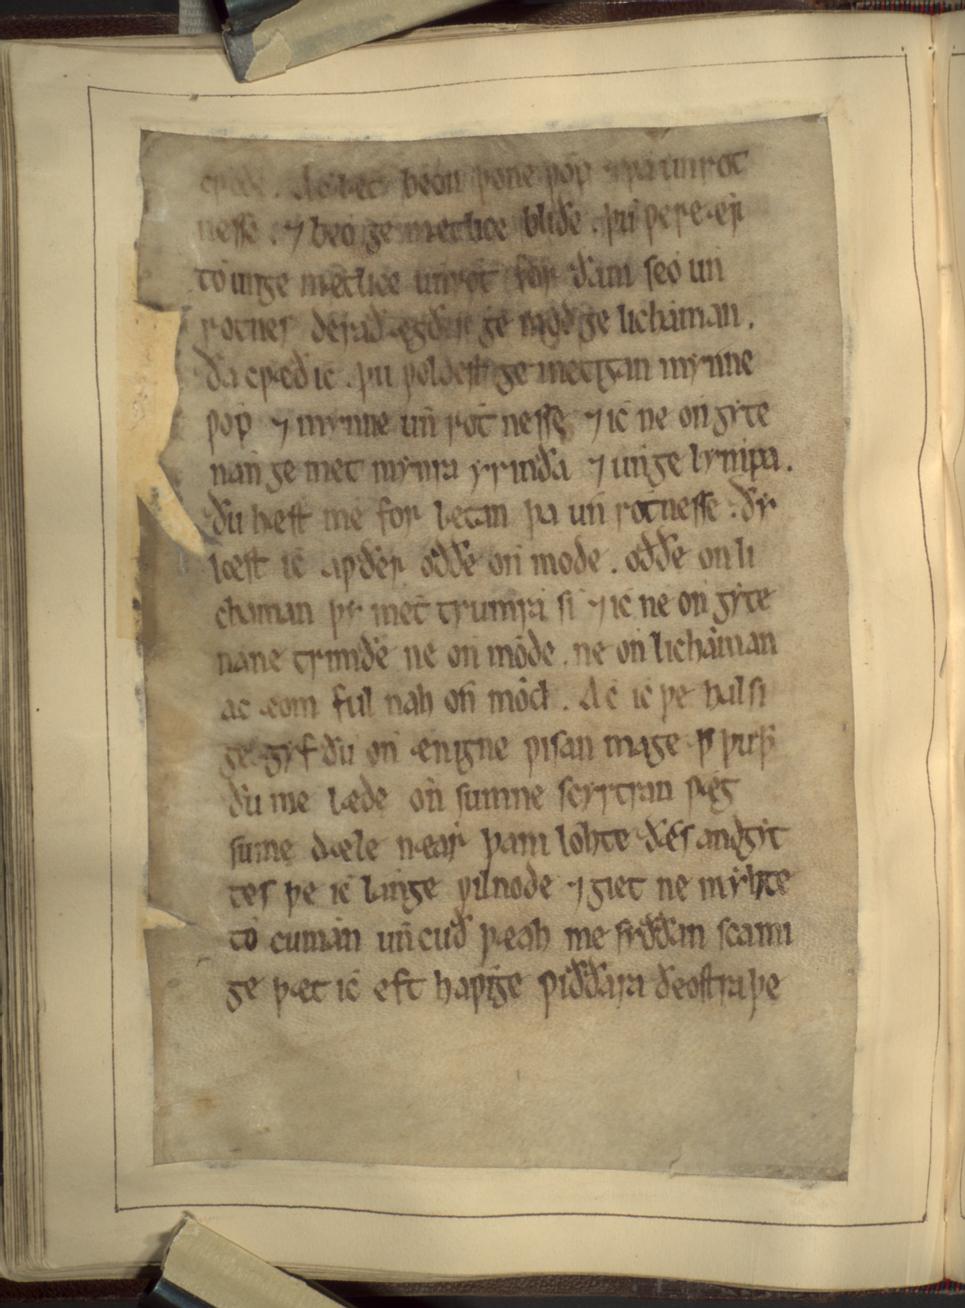 cƿæð . Ac læt beon þone ƿop ⁊ þa unrot
nesse . ⁊ beo ge metlice bliðe . þu ƿere ær
to unge metlice unrot for ðam seo un
rotnes derað ægðer ge mode ge lichaman .
ða cƿæð ic . þu ƿoldest ge metgan mynne
ƿop ⁊ mynne un rotnesse ⁊ ic ne on gyte
nan ge met mynra yrmða ⁊ unge lympa .
ðu hæst me for lætan þa un rotnesse . ðy
læst ic aƿðer oððe on mode . oððe on li
chaman þy met trumra si ⁊ ic ne on gyte
nane trimðe ne on mode . ne on lichaman
ac æom ful nah on mod . Ac ic þe halsi
ge gyf ðu on ænigne ƿisan mage ꝥ
ðu me læde on sumne scyrtran ƿæg
sume dæle near þam lohte ðæs andgit
tes þe ic lange ƿilnode ⁊ giet ne myhte
to cuman uncuð þeah me syððan scami
ge þæt ic eft haƿige ƿiððara ðeostra þe